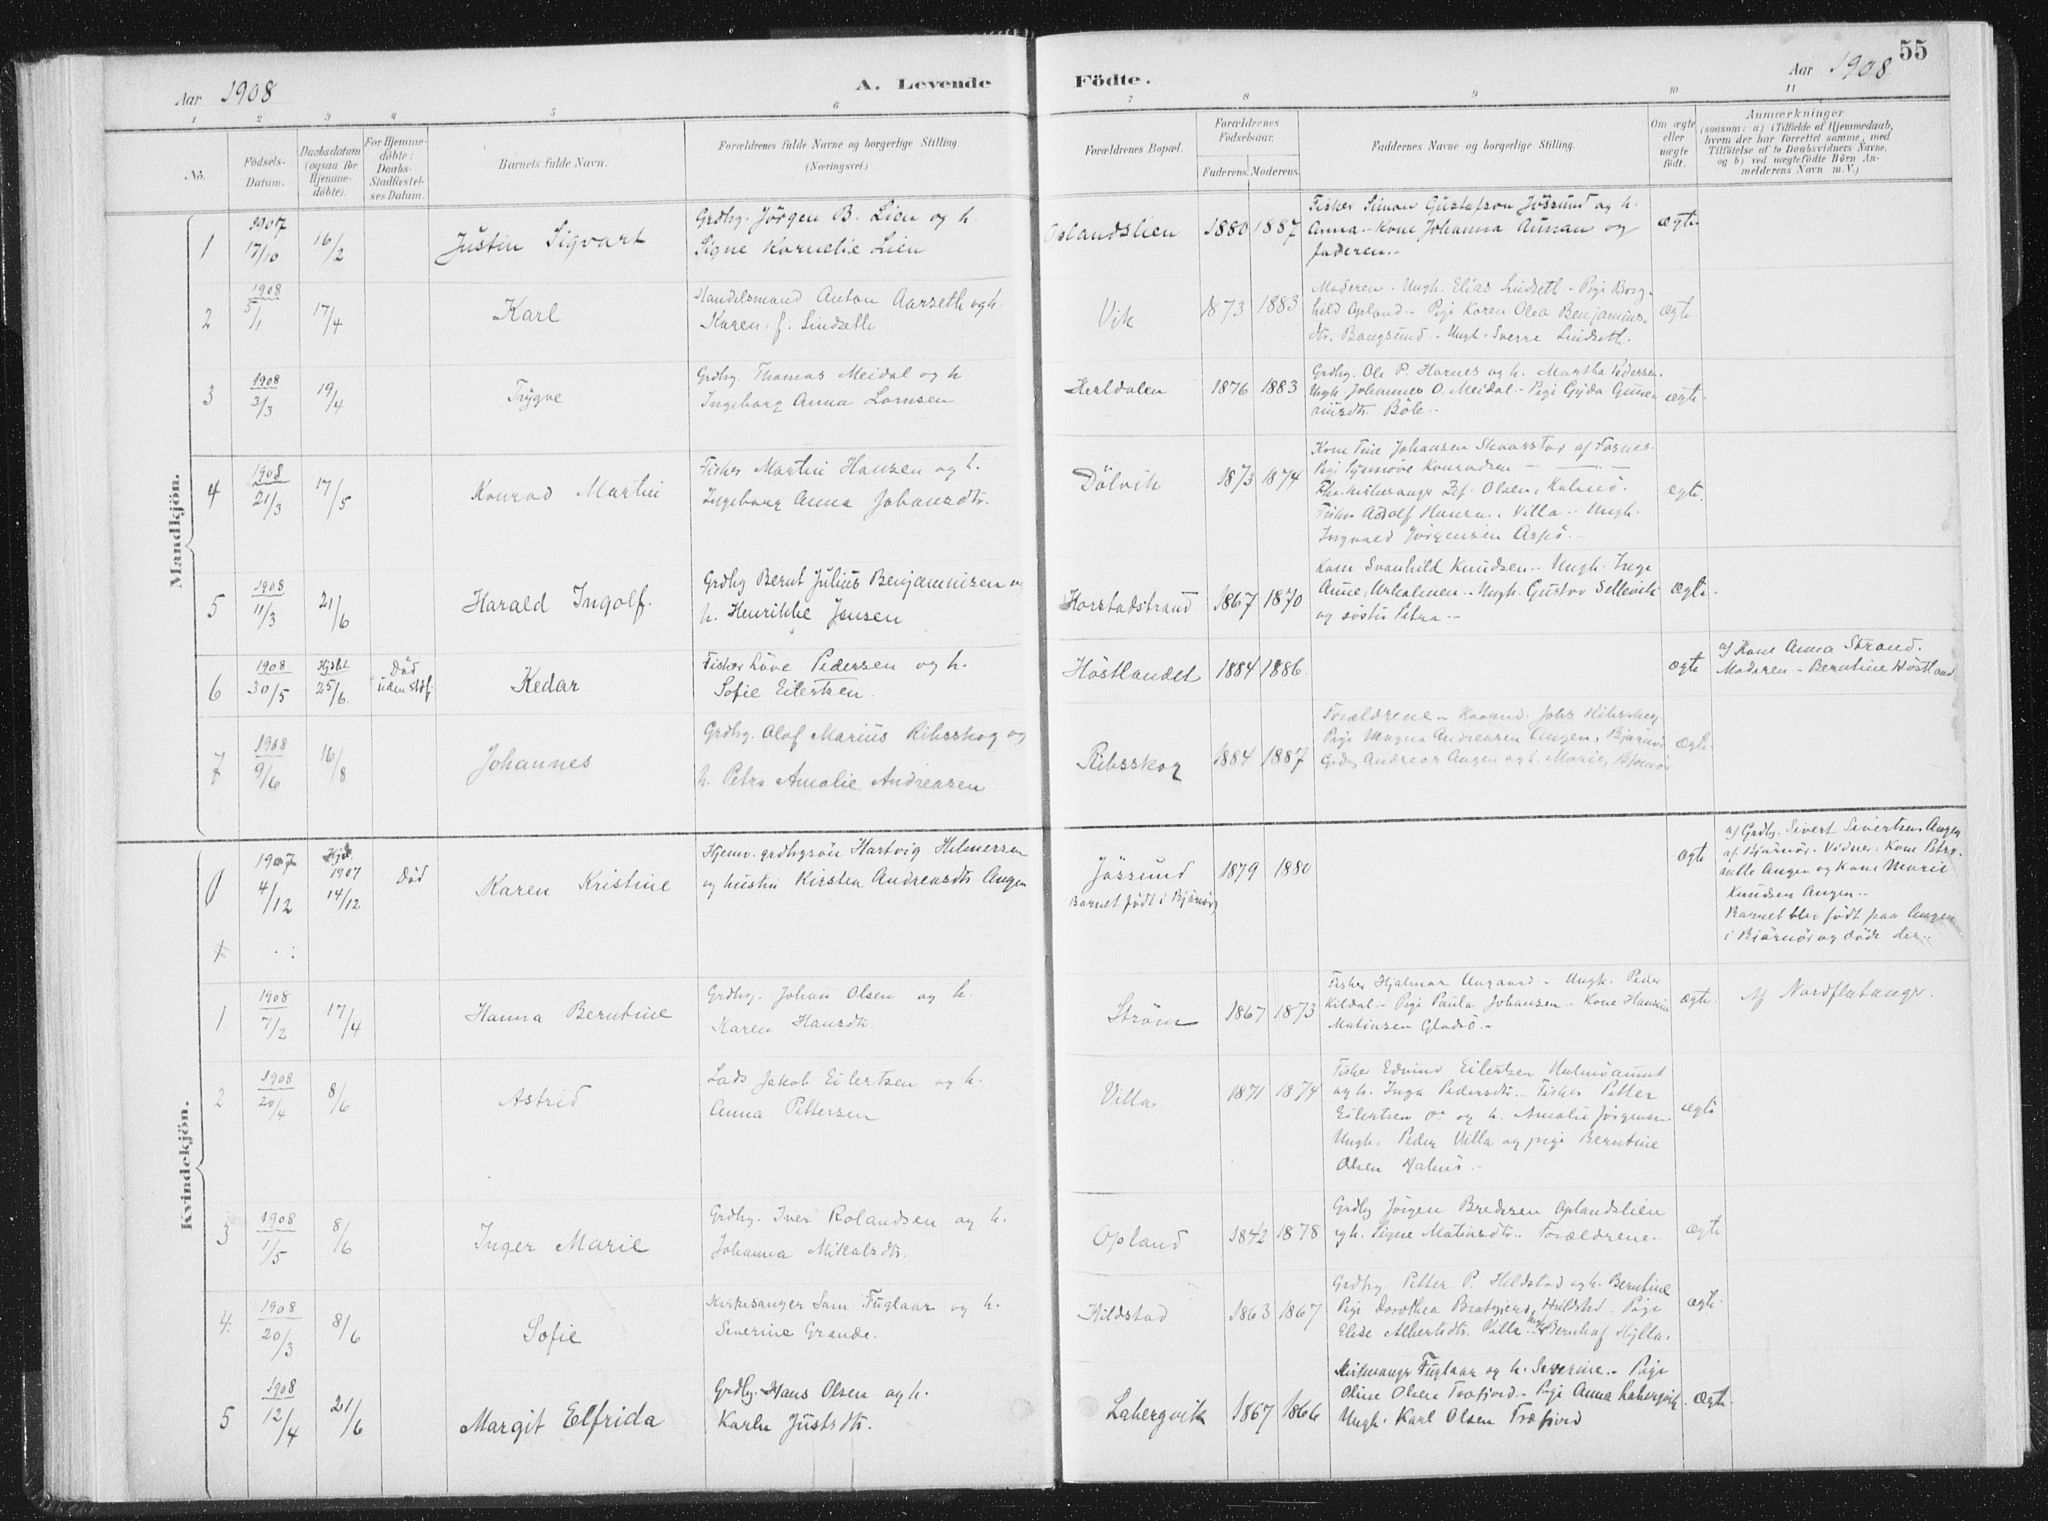 Aar 1908
A. Levende
Födte.
Aar 1908
55
1 2 3 4 5 6 7 8 9 10 11
No.
Födsels-Datum.
Daabsdatum (ogsaa for Hjemme-döbte).
For Hjemme-döbte: Daabs-Stadfæstel-ses Datum.
Barnets fulde Navn.
Forældrenes fulde Navne og borgerlige Stilling. (Næringsvei)
Forældrenes Bopæl.
Forældrenes Födselsaar.
Faderens. Moderens.
Faddernes Navne og borgerlige Stilling.
Om ægte eller uægte födt.
Anmærkninger
(saasom: a) i Tilfælde af Hjemmedaab,
hvem der har forrettet samme, med
Tilföielse af to Daabsvidners Navne,
og b) ved uægtefödte Börn An-
melderens Navn m. V.)
Mandkjön.
1 1907 17/10 16/2 Justin Sigvart
Grdbg. Jörgen B. Lien og h.
Signe Kornelie Lien
Oplandslien 1880 1887
Fisker Simon Gustafson Jössund og h.
Anna - Kone Johanna Aunan og
faderen.
ægte
2 1908 5/1 17/4 Karl
Handelsmand Anton Aarseth og h.
Karen f. Lindseth
Vik 1873 1883
Moderen - Ungk. Elias Lindseth - Pige Borg-
hild Opland - Pige Karen Olea Benjamins-
dtr. Bangsund - Ungk. Sverre Lindseth.
ægte
3 1908 3/3 19/4 Trygve
Grdbg. Thomas Meidal og h
Ingeborg Anna Lornsen
Herldalen 1876 1883
Grdbg. Ole P. Hornes og h. Martha Pedersen.
Ungk. Johannes O. Meidal - Pige Gyda
Böle
ægte
4 1908 21/3 17/5 Konrad Martin
Fisker Martin Hansen og h.
Ingeborg Anna Johansdtr.
Dölvik 1873 1874
Kone Tine Johansen Skaarstad af Fosnes
Pige Synnöve Konradsen
Olsen, Kalnö.
Fisker Adolf Hansen, Villa - Ungk.
Ingvald Jörgensen Aspö.
ægte
5 1908 11/3 21/6 Harald Ingolf.
Grdbg Bernt Julius Benjaminsen og
h. Henrikke Jensen
Horstadstrand 1867 1870
Svanhild Knudsen - Ungk. Inge
Ungk. Gustav Sellevik
og söster Petra
ægte
6 1908 30/5 Hjdbt. 25/6 Död uden stdf.
Kedar
Fisker Löve Pedersen og h.
Sofie Eilertsen.
Höstlandet 1884 1886
ægte
af Kone Anna Strand.
Moderen - Berntine Höstland
7 1908 9/6 16/8 Johannes
Grdbg. Olof Marius Ribsskog og
h. Petra Amalie Andreasen
Ribsskog 1884 1887
Forældrene - Johs Ribsskog
Pige Magna Andreasen Angen, Bjärnör
Grdbg Andreas Angen og h. Marie, Bjärnör
ægte
Kvindekjön.
1 1907 4/12 Hjdbt. 1907 14/12 Död
Karen Kristine
Hjemv. grdbgsön Hartvig Hilmersen
og hustru Kirsten Andreasdtr. Angen
Jössund
Barnet födt i Bjärnör
1879 1880
ægte
af Grdbg. Sivert Sivertsen Angen
af Bjärnör. Vidner: Kone Petro-
nelle Angen og Kone Marie
Knudsen Angen.
Barnet blev födt paa Angen
i Bjärnör og döde der.
1 1908 7/2 17/4 Hanna Berntine
Grdbg. Johan Olsen og h.
Karen Hansdtr.
Ström 1867 1873
Fisker Hjalmar Aagaard - Ungk. Peder
Kildal - Pige Paula Johansen - Kone Hansine
Matiasen Gladsö.
ægte
Af Nordflatanger.
2 1908 20/4 8/6 Astrid
Lods Jakob Eilertsen og h.
Anna Pettersen
Villa 1871 1874
Fisker Edvind Eilertsen
og h. Inga Pedersdtr. - Fisker Petter
Eilertsen og h. Amalie Jörgensen
Ungk. Peder Villa og pige Berntine
Olsen Halmö.
ægte
3 1908 1/5 8/6 Inger Marie
Grdbg. Iver Rolandsen og h.
Johanna Mikalsdtr.
Opland 1842 1878
Grdbg Jörgen Bredesen Oplandslien
og h. Signe Matiasdtr. Forældrene.
ægte
4. 1908 20/3 8/6 Sofie
Kirkesanger Sam. Fuglaar og h.
Severine Grande.
Hildstad 1863 1867
Grdbg. Petter P. Hildstad og h. Berntine
Pige Dorothea Hildstad. Pige
Elise Albertsdtr. Villa - Ungk. Bernhof Hylla.
ægte
5 1908 12/4 21/6 Margit Elfrida
Grdbg. Hans Olsen og h.
Karen Justsdtr.
Labergvik 1867 1866
Kirkesanger Fuglaar og h. Severine. - Pige
Oline Olsen Træfjord - Pige Anna Labergvik
Ungk. Karl Olsen Træfjord
ægte